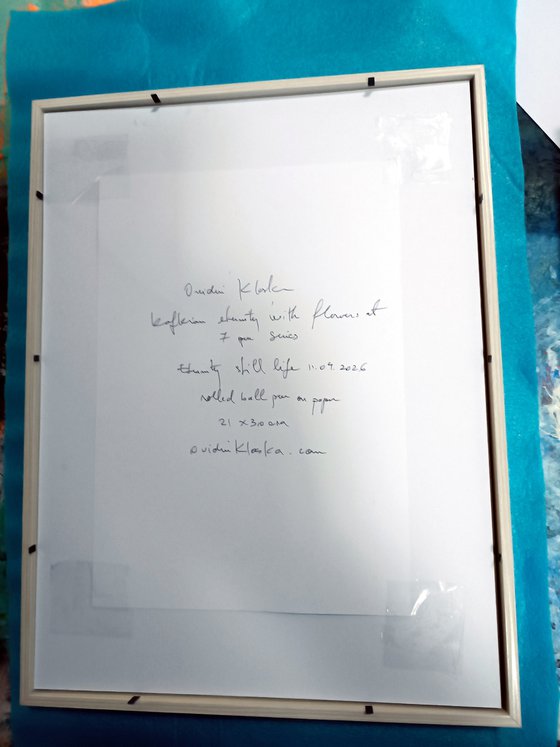 Ovidiu Kloska
kafkian eternity with flowers at
7 pm series
Eternity still life 11.04.2026
rolled ball pen on paper
21 x 30 cm
ovidiuKloska.com